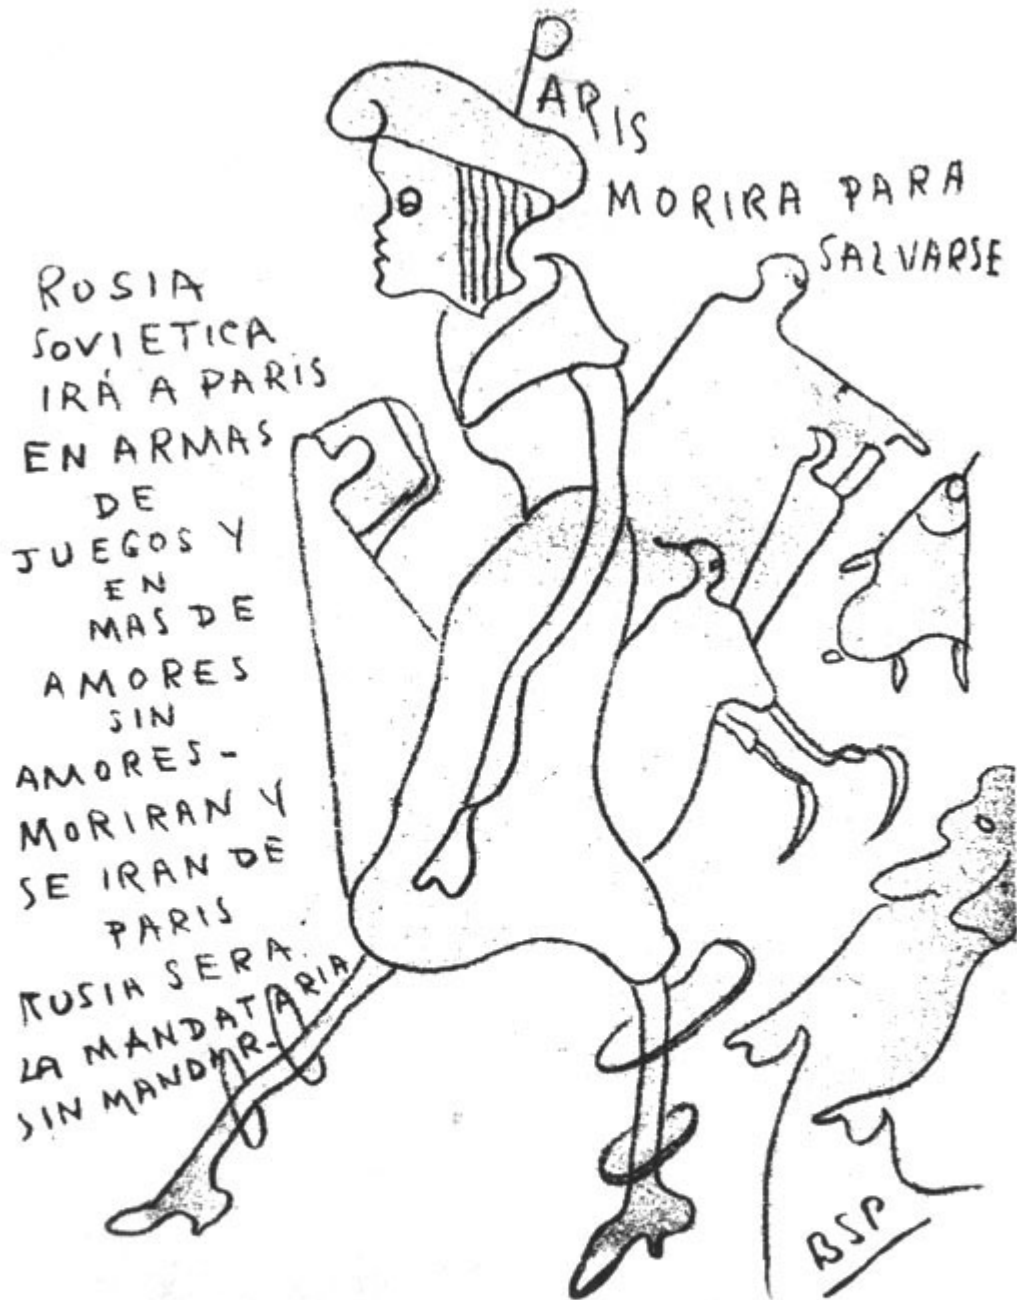 PARIS
MORIRA PARA
SALVARSE
RUSIA
SOVIETICA
IRÁ A PARIS
EN ARMAS
DE
JUEGOS Y
EN
MAS DE
AMORES
SIN
AMORES-
MORIRAN Y
SE IRAN DE
PARIS
RUSIA SERA
LA MANDATARIA
SIN MANDAR-
BSP